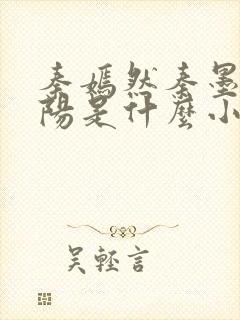 秦嫣然秦墨
陽是什麼小
吳輕言